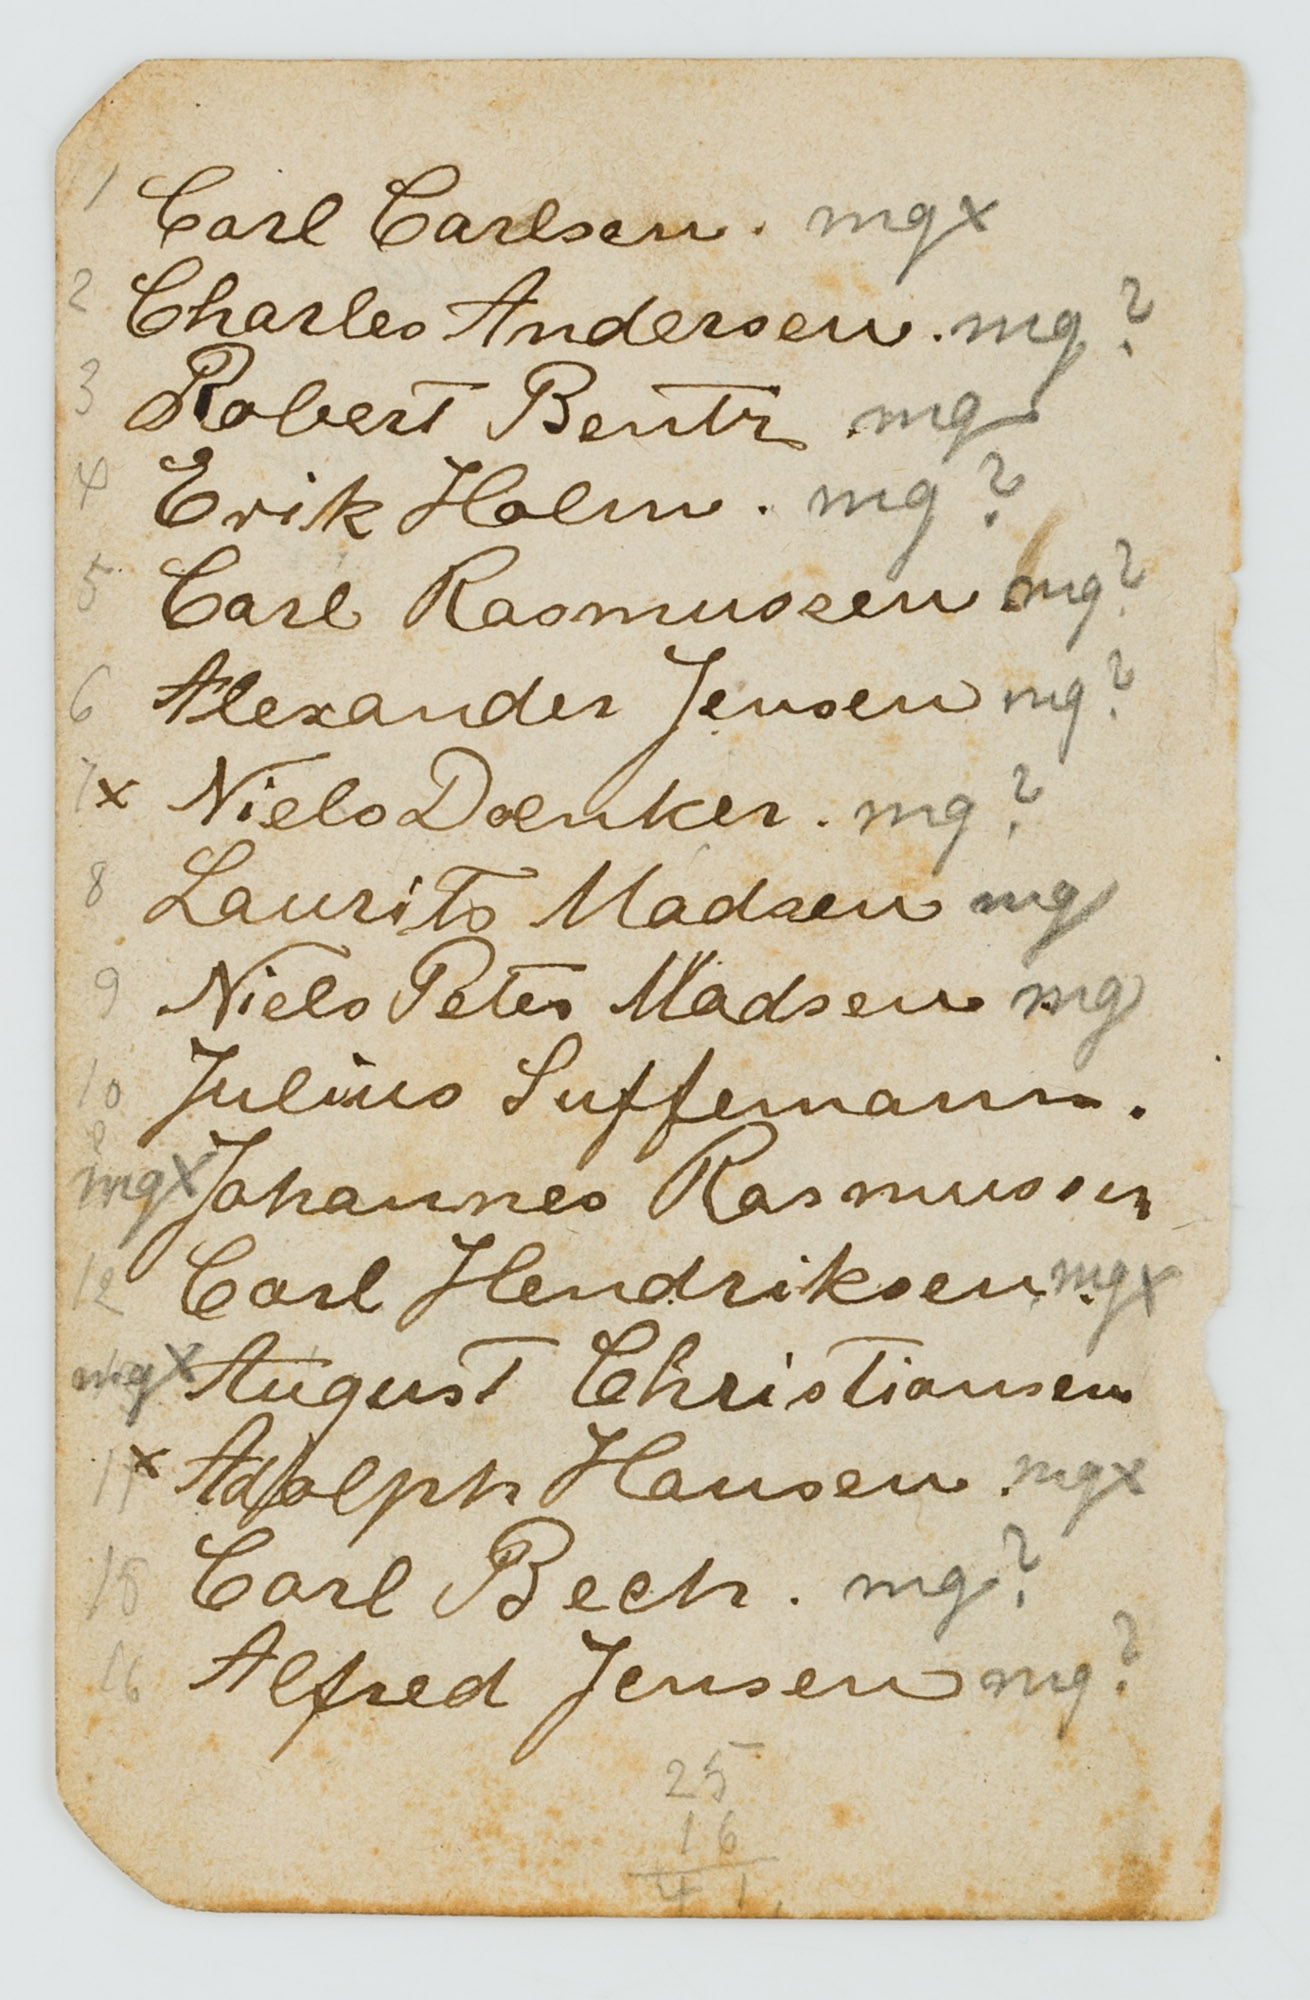 1 Carl Carlsen. mg x
2 Charles Andersen. mg ?
3 Robert Bentz mg
4 Erik Holm. mg ?
5 Carl Rasmussen mg ?
6 Alexander Jensen mg ?
7 x Niels Doenker. mg ?
8 Laurits Madsen mg
9 Niels Peter Madsen mg
10 Julius Suffemann.
mg x Johannes Rasmussen
12 Carl Hendriksen. mg x
mg x August Christiansen
14 x Adolph Hansen. mg x
15 Carl Bech. mg ?
16 Alfred Jensen mg ?
25
16
41